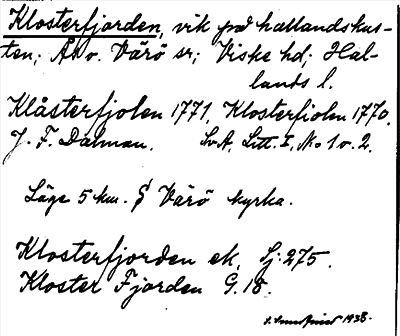 Klosterfjorden, vik på hallandskus-
ten; Ås o. Värö sr; Viske hd; Hal-
lands l.
Klåsterfjolen 1771, Klosterfiolen 1770,
J. F. Dalman. SvA, Litt. I, No 1 o. 2.
Läge 5 km. S Värö kyrka.
Klosterfjorden ek. Sj: 275.
Kloster Fjorden G. 18.
1938.